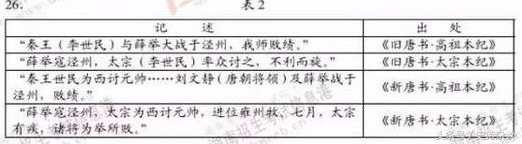 26. 表2
记 述 出 处
“秦王（李世民）与薛举大战于泾州，我师败绩。” 《旧唐书·高祖本纪》
“薛举寇泾州，太宗（李世民）率众讨之，不利而旋。” 《旧唐书·太宗本纪》
“秦王世民为西讨元帅……刘文静（唐朝将领）及薛举战于 《新唐书·高祖本纪》
泾州，败绩。”
“薛举寇泾州，太宗为西讨元帅，进位雍州牧。七月，太宗 《新唐书·太宗本纪》
有疾，诸将为举所败。”